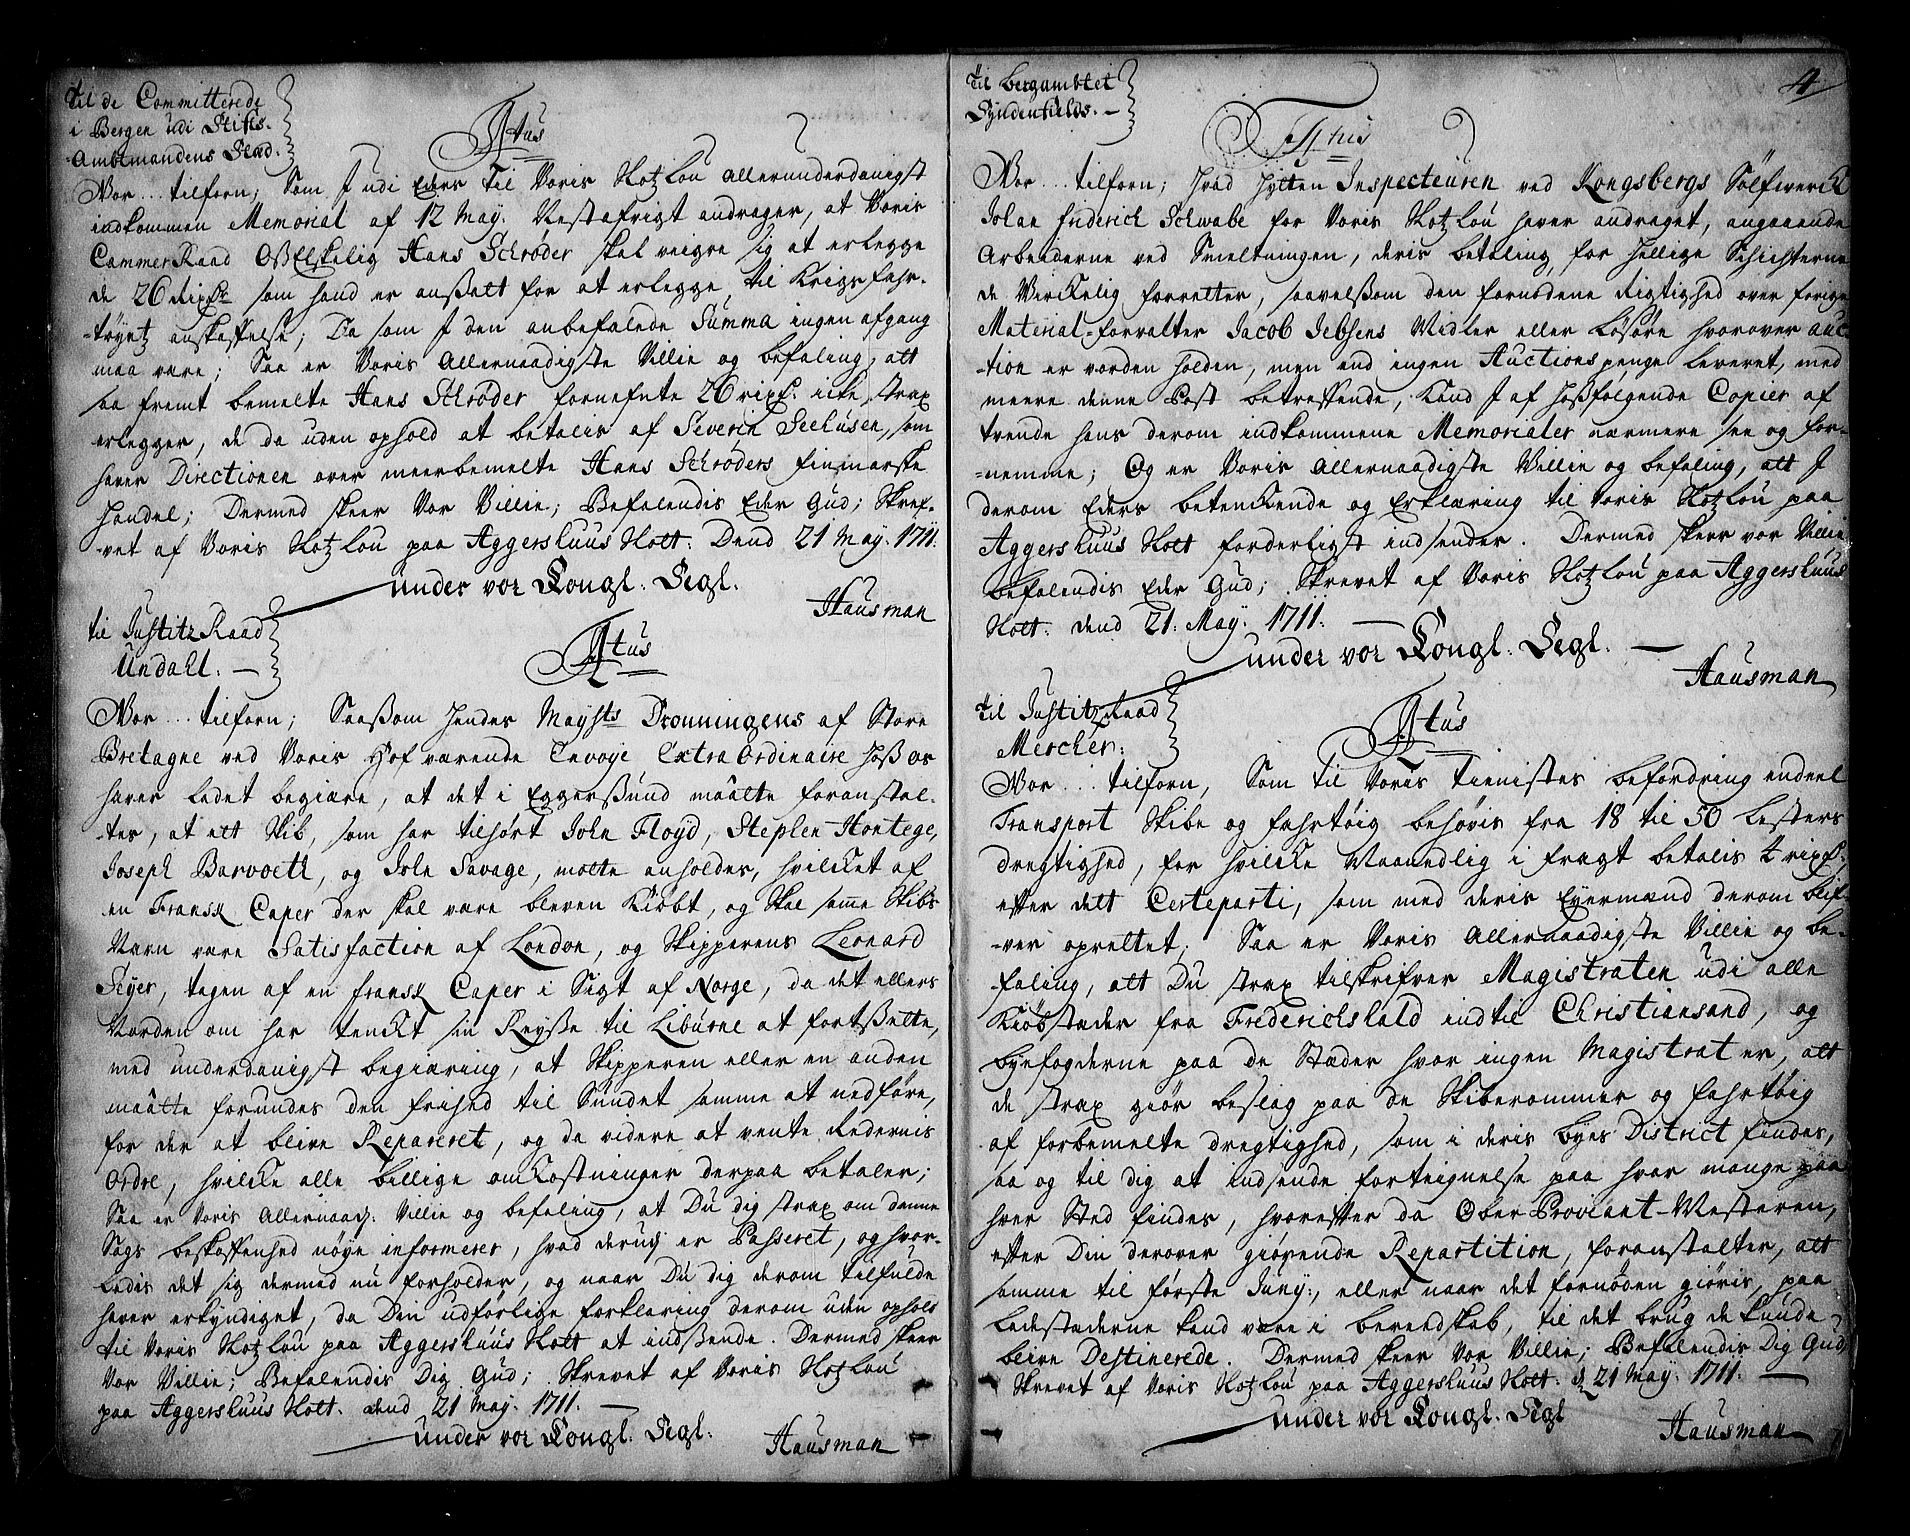 Til de Committerede
i Bergen udi Stifts-
Ambtmandens Sted.
Ftus
Vor... tilforn; Som I udi Eders til Voris Slotzlou allerunderdanigst
indkommen Memorial af 12 May. Nestafvigt andrager, at Voris
CammerRaad Oß Elskelig Hans Schrøder skal veigre sig at erlegge
de 26 rixdr som hand er ansatt for at erlegge til Krigs fahr-
-tøyetz anskaffelse; Da som I den anbefalede Summa ingen afgang
maa være; Saa er Voris Allernaadigste Villie og befaling, att
saa fremt bemelte Hans Schrøder fornefnte 26 rixd. icke strax
erlegger, de da uden ophold at betalis af Severin Seehusen, som
hafver Directionen over meerbemelte Hans Schrøders finmarske
Handel; Dermed skeer Vor Villie; Befalendis Eder Gud; Skref-
-vet af Voris Slotzlou paa Aggershuus Slott. Dend 21 May. 1711.
under vor Kongl. Segl.
Hausman
til JustitzRaad
Undahl.
Ftus
Vor... tilforn; Saasom Hendes Maysts Dronningens af Store
Bretagne ved Voris Hof værende Envoye Extra Ordinaire hoß os
hafver ladet begiære, at det i Eggersund maatte foranstal-
-tes, at ett Skib, som har tilhørt John Floyd, Stephen Hontege,
Joseph Barvoell, og John Savage, motte anholdes, hvilcket af
en Fransk Caper der skal være bleven Kiøbt, og skal samme Skibs
Navn være Satisfaction af London, og Skipperens Leonard
Feyer, tagen af en fransk Caper i Sigt af Norge, da det ellers
Norden om har tenckt sin Reyße til Liburne at fortsette,
med underdanigst begiæring, at Skipperen eller en anden
maatte forundes den frihed til Sundet samme at nedføre,
for der at blive Repareret, og da videre at vente Redernis
Ordre, hvilcke alle billige omkostninger derpaa betaler;
Saa er Voris Allernaad: Villie og befaling, at Du dig strax om denne
Sags beskaffenhed nøye informerer, hvad derudj er Passeret, og hvor-
-ledis det sig dermed nu forholder, og naar Du dig derom tilfulde
hafver erkyndiget, da Din udførlige forklaring derom uden ophold
til Voris Slotzlou paa Aggershuus Slott at indsende. Dermed skeer
Vor Villie; Befalendis Dig Gud; Skrevet af Voris Slotzlou
paa Aggershuus Slott. dend 21 May. 1711.
under vor Kongl. Segl.
Hausman
4
Til Bergambtet
Syndenfields.
Ftus
Vor... tilforn; hvad Hytten Inspecteuren ved Kongsbergs Sølfverk
Johan Friderich Schwabe for Voris Slotzlou hafver andraget, angaaende
Arbeiderne ved Smeltningen, deris betaling for hellige Schichterne
de Virckelig forretter, saavelsom den fornødene Rigtighed over forige
Material-forvalter Jacob Jebsens Midler eller Løsøre hvorover auc-
-tion er vorden holden, men end ingen Auctions penge leveret, med
meere denne Post betreffende, Kand I af Hoßfølgende Copier af
trende hans derom indkommene Memorialer nærmere see og for-
-nemme; Og er Voris Allernaadigste Villie og befaling, att I
derom Eders betenckende og Erklæring til Voris Slotzlou paa
Aggershuus Slott forderligst indsender. Dermed skeer vor Villie
befalendis Eder Gud; Skrevet af Voris Slotzlou paa Aggershuus
Slott. dend 21. May. 1711.
under vor Kongl. Segl.
Hausman
Til JustitzRaad
Mercker.
Ftus
Vor... tilforn, Som til Voris Tienistes befordring endeel
Transport Skibe og fahrtøig behøvis fra 18 til 50 Lesters
dregtighed, for hvilcke Maanedlig i fragt betalis 4 rixd.
efter dett Certeparti, som med deris Eyermænd derom blif-
-ver oprettet; Saa er Voris Allernaadigste Villie og be-
faling, att Du strax tilskrifver Magistraten udi alle
Kiøbstæder fra Friderichshald indtil Christiansand, og
byefogderne paa de Stæder hvor ingen Magistrat er, att
de strax giør beslag paa de Skiberommer og fahrtøig
af forbemelte dregtighed, som i deris byes District findes,
saa og til dig at indsende forteignelse paa hvor mange paa
hver Sted findes, hvorefter da Ober-Proviant-Mesteren,
efter Din derover giørende Repartition, foranstalter, att
samme til første Juny:, eller naar det fornøden giøris, paa
Ladestæderne kand være i beredskab, til det brug de kunde
blive Destinerede. Dermed skeer Vor Villie; Befalendis Dig Gud,
Skrevet af Voris Slotzlou paa Aggershuus Slott. d. 21 May. 1711.
under vor Kongl. Segl
Hausman